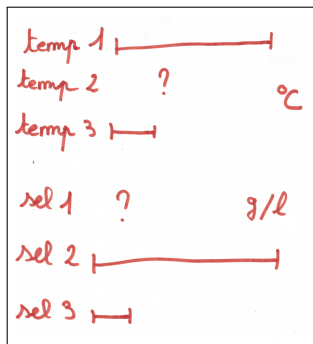 temp 1
temp 2 ?
°C
temp 3
sel 1 ? g/l
sel 2
sel 3